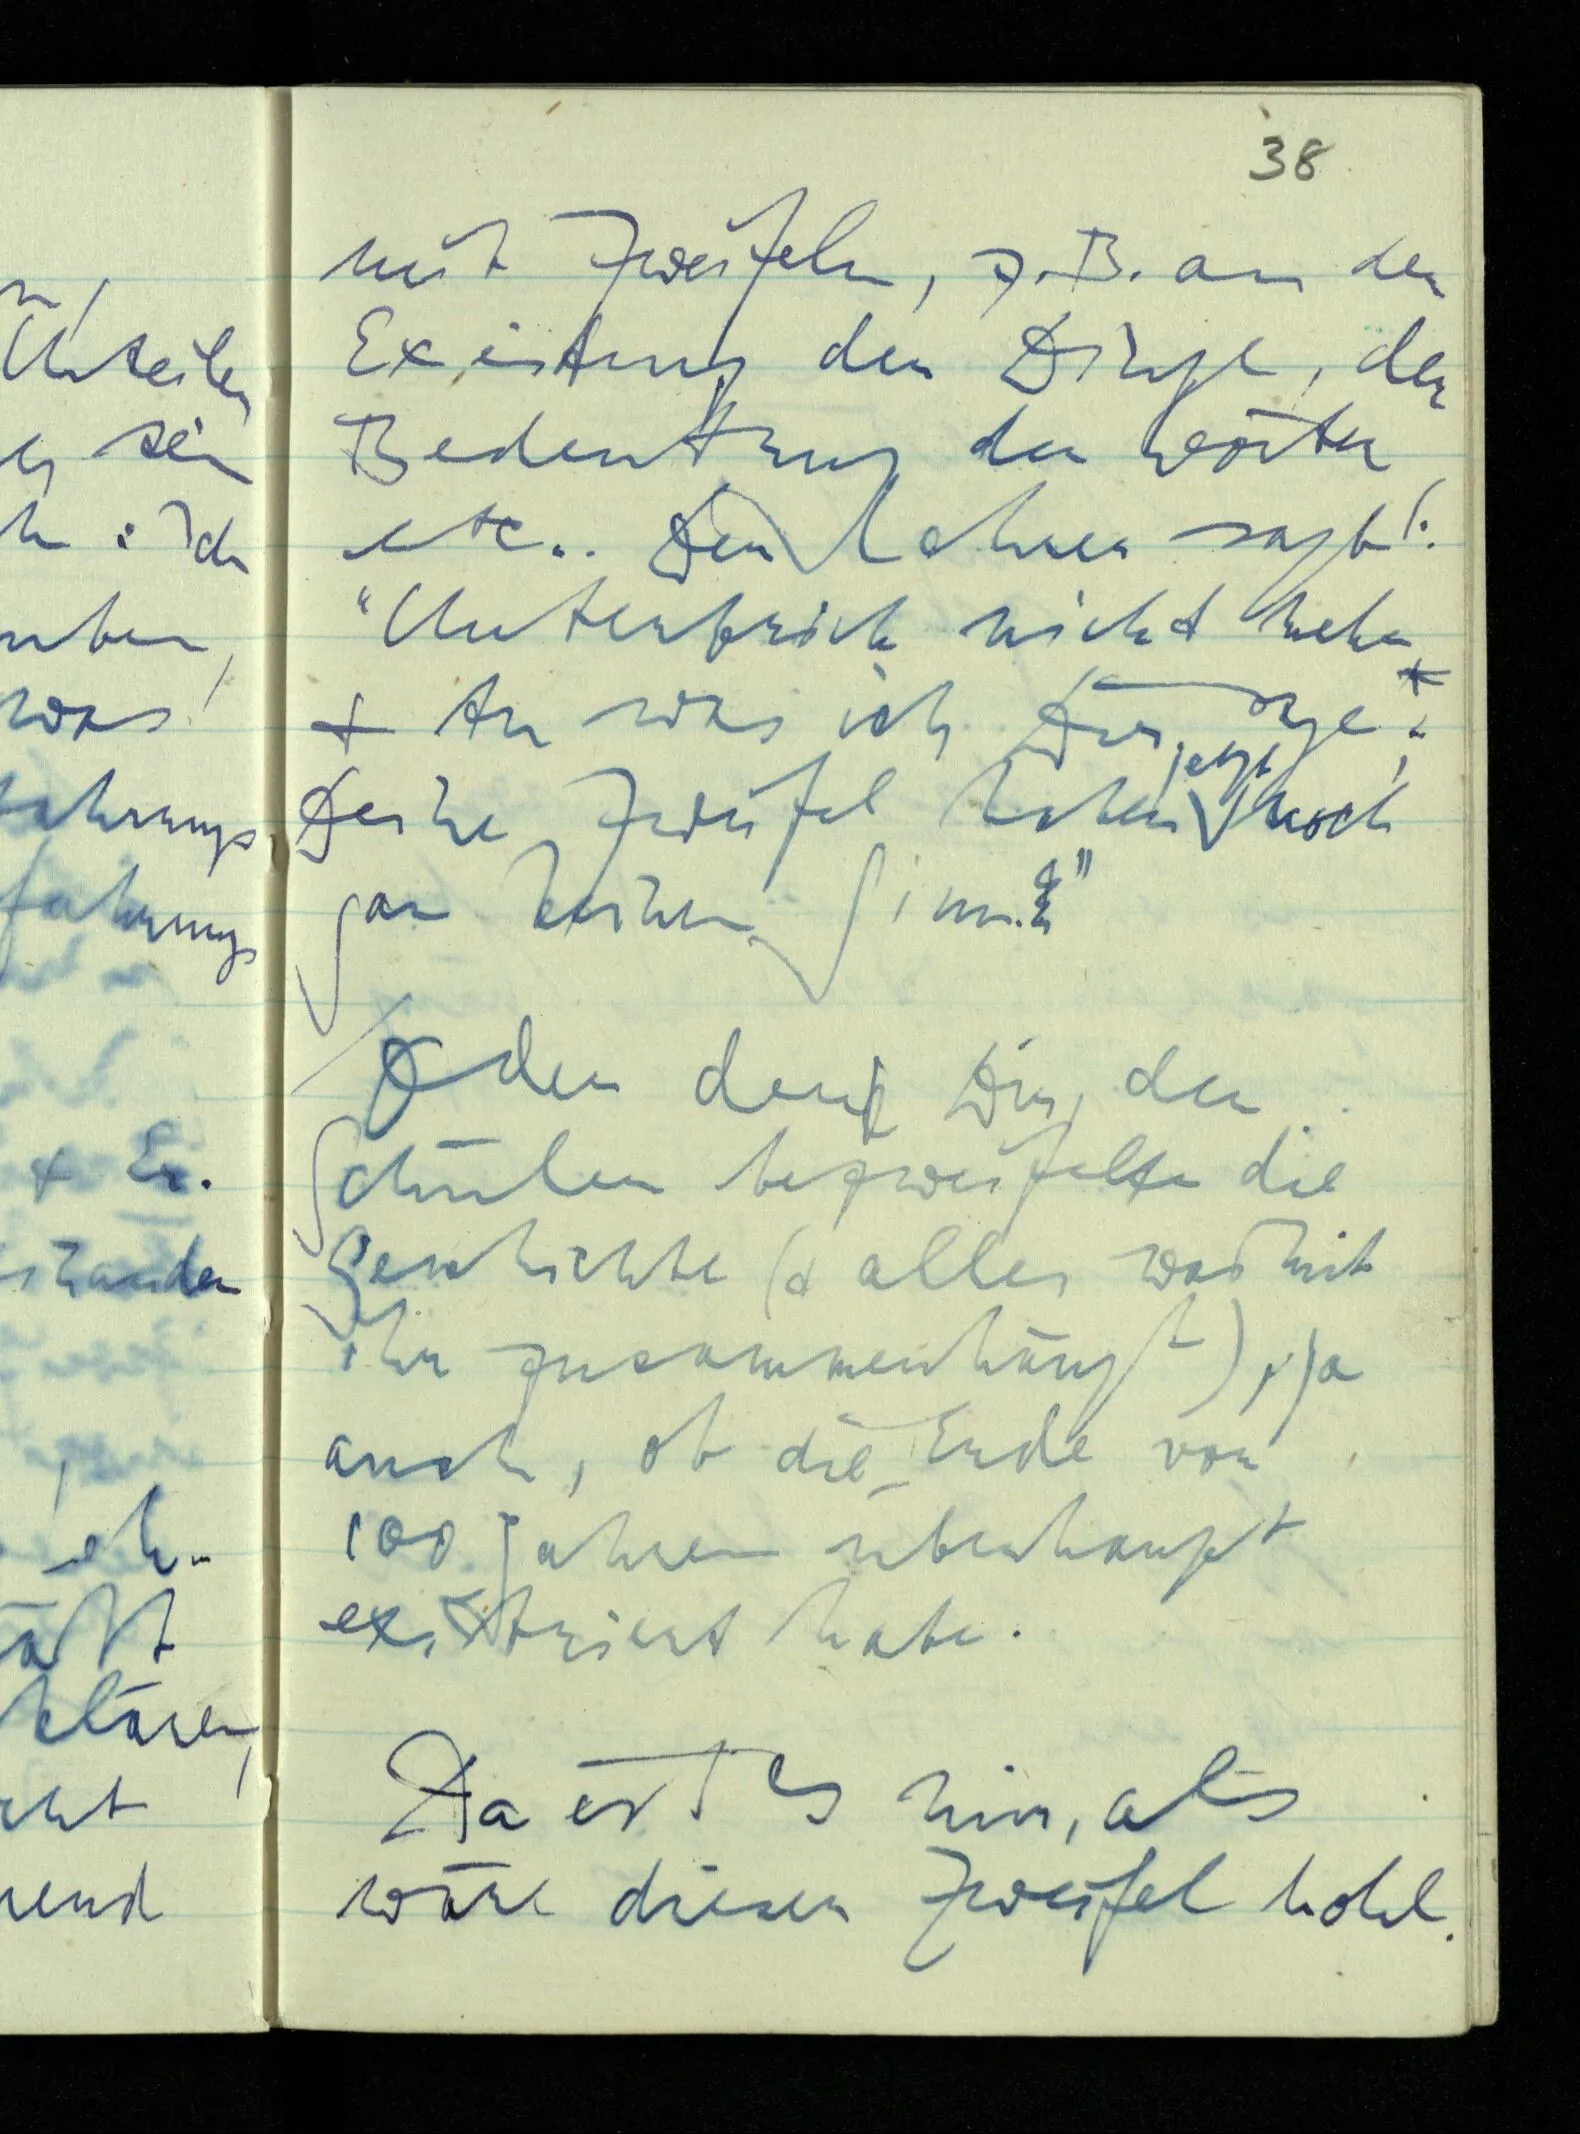 Urteilen
sein
: Ich
was
fahrungs
fahrungs
& Er.
klären,
38
mit Zweifeln, z.B. an der
Existenz der Dinge, der
Bedeutung der Wörter
etc.. Der Lehrer sagt:
"Unterbrich nicht mehr
& tu was ich Dir sage;
Deine Zweifel haben jetzt noch
gar keinen Sinn."
Oder denk Dir, der
Schüler bezweifelte die
Geschichte (& alles was mit
ihr zusammenhängt), ja
auch, ob die Erde vor
100 Jahren überhaupt
existiert habe.
Da ist es mir, als
wäre dieser Zweifel hohl.